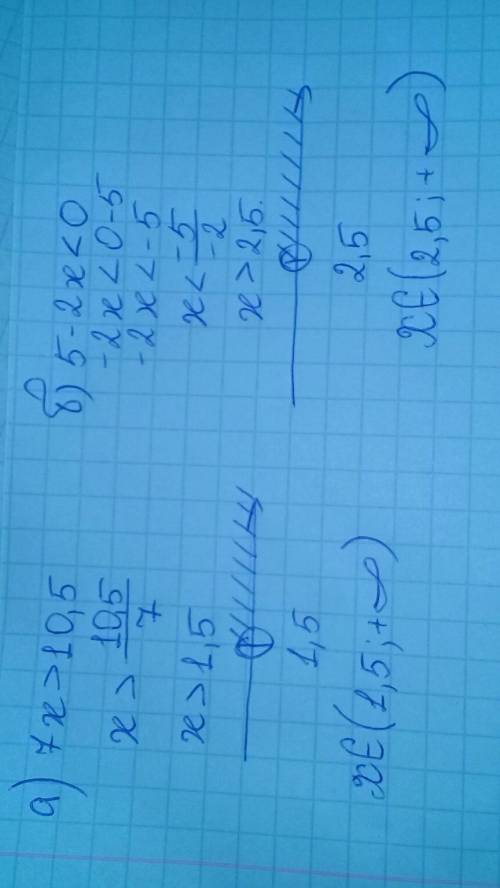 а) 7x > 10,5
x > 10,5/7
x > 1,5
1,5
x∈(1,5; +∞)
б) 5-2x<0
-2x<0-5
-2x<-5
x < -5/-2
x > 2,5.
2,5
x∈(2,5; +∞)